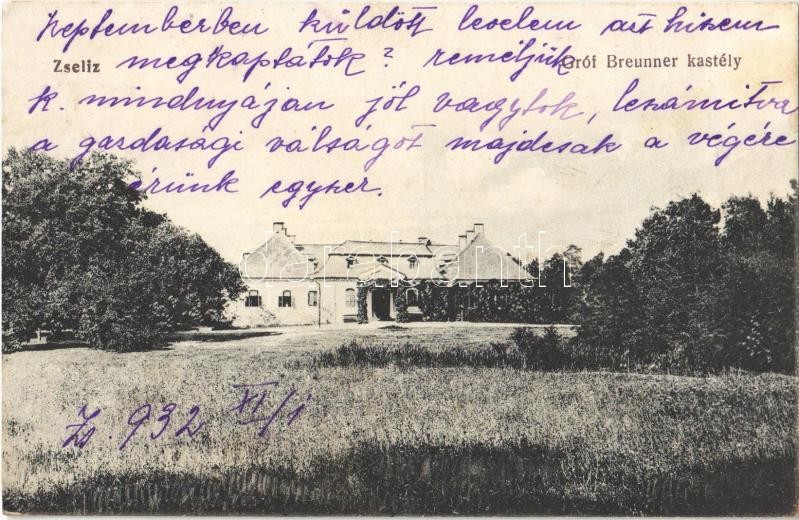 szeptemberben küldött levelem azt hiszem
Zseliz megkaptátok? reméljük Gróf Breunner kastély
k. mindnyáján jól vagytok, leszámitva
a gazdasági válságot majdcsak a végére
érünk egyszer.
darabanth
Zs. 932 XI/1